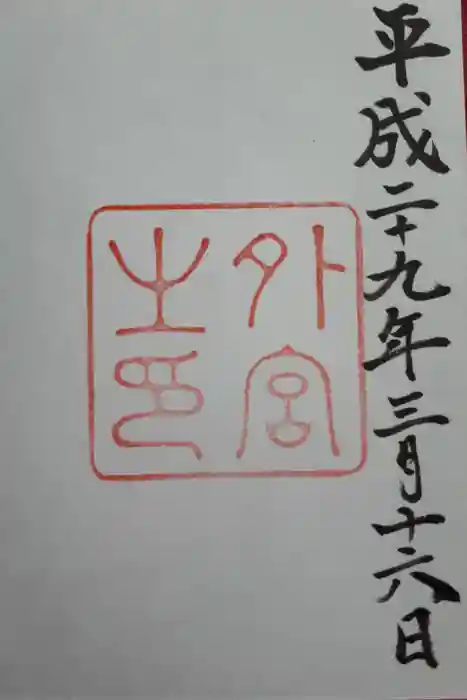 平成二十九年三月十六日
外宮
之印